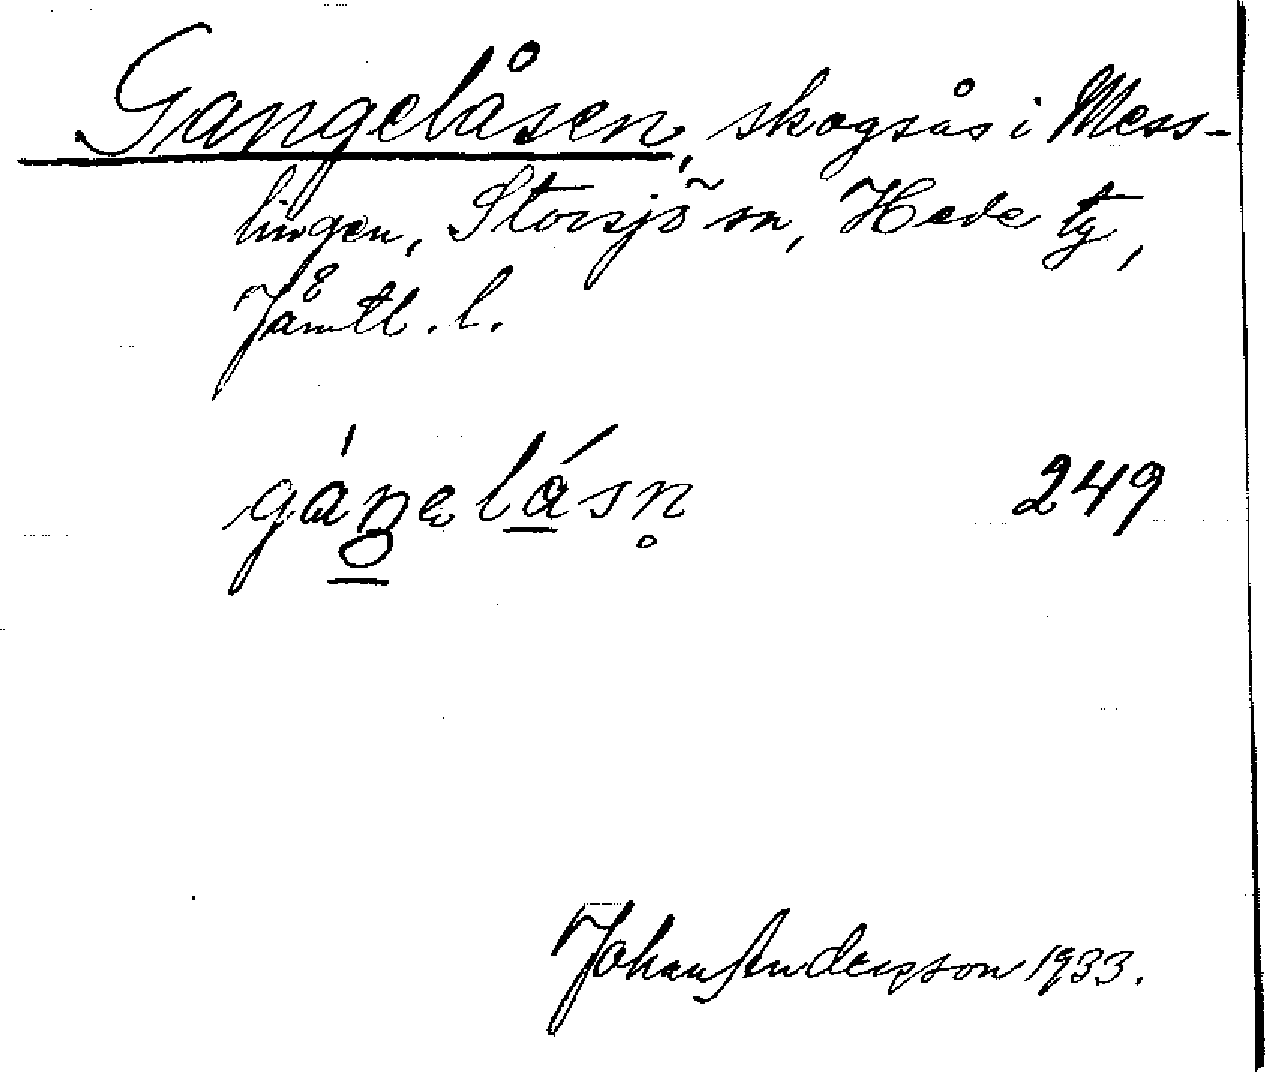 Gangelåsen, skogsås i Mess-
lingen, Storsjö sn, Hede tg,
Jämtl. l.
gáŋelǻsn̥ 249
Johan Andersson 1933.